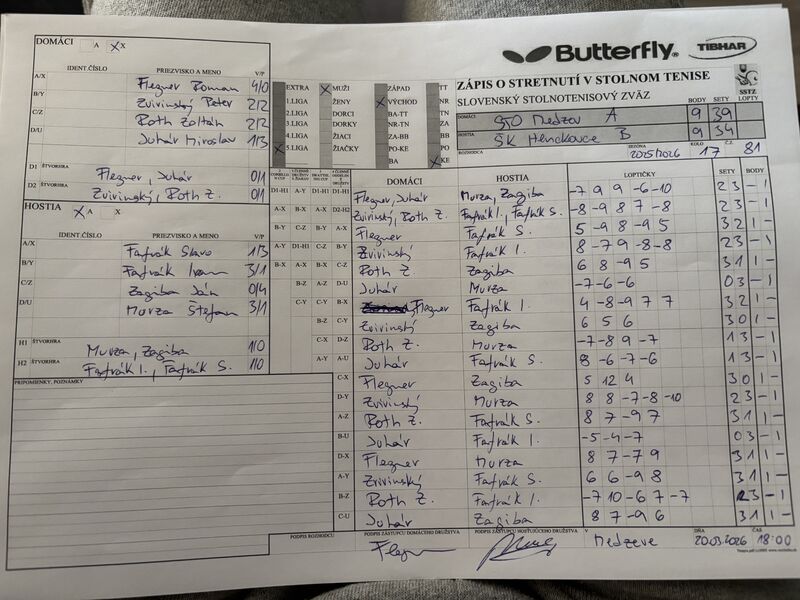 Butterfly® TIBHAR
ZÁPIS O STRETNUTÍ V STOLNOM TENISE
SLOVENSKÝ STOLNOTENISOVÝ ZVÄZ SSTZ
BODY SETY LOPTY
DOMÁCI SSO Medzov A 9 39
HOSTIA ŠK Henckovce B 9 34
ROZHODCA SEZÓNA 2025/2026 KOLO 17 Č. 81
EXTRA X MUŽI ZÁPAD TT
1.LIGA ŽENY X VÝCHOD NR
2.LIGA DORCI BA-TT TN
3.LIGA DORKY NR-TN ZA
4.LIGA ŽIACI ZA-BB BB
X 5.LIGA ŽIAČKY PO-KE PO
BA X KE
DOMÁCI A X X
IDENT.ČÍSLO PRIEZVISKO A MENO V/P
A/X Flegner Roman 4/0
B/Y Zvirinský Peter 2/2
C/Z Roth Zoltán 2/2
D/U Juhár Miroslav 1/3
D1 ŠTVORHRA Flegner, Juhár 0/1
D2 ŠTVORHRA Zvirinský, Roth Z. 0/1
HOSTIA X A X
IDENT.ČÍSLO PRIEZVISKO A MENO V/P
A/X Fafrák Slavo 1/3
B/Y Fafrák Ivan 3/1
C/Z Zagiba Ján 0/4
D/U Murza Štefan 3/1
H1 ŠTVORHRA Murza, Zagiba 1/0
H2 ŠTVORHRA Fafrák I., Fafrák S. 1/0
PRIPOMIENKY, POZNÁMKY
DOMÁCI HOSTIA LOPTIČKY SETY BODY
D1-H1 A-Y D1-H1 D1-H1 Flegner, Juhár Murza, Zagiba -7 9 9 -6 -10 2 3 - 1
A-X B-X A-X D2-H2 Zvirinský, Roth Z. Fafrák I., Fafrák S. -8 -9 8 7 -8 2 3 - 1
B-Y C-Z B-Y A-X Flegner Fafrák S. 5 -9 8 -9 5 3 2 1 -
A-Y D1-H1 C-Z B-Y Zvirinský Fafrák I. 8 -7 9 -8 -8 2 3 - 1
B-X A-X B-X C-Z Roth Z Zagiba 6 8 -9 5 3 1 1 -
B-Z A-Z D-U Juhár Murza -7 -6 -6 0 3 - 1
C-Y C-Y B-X Flegner Fafrák I. 4 -8 -9 7 7 3 2 1 -
B-Z C-Y Zvirinský Zagiba 6 5 6 3 0 1 -
C-X D-Z Roth Z. Murza -7 -8 9 -7 1 3 - 1
A-Y A-U Juhár Fafrák S. 8 -6 -7 -6 1 3 - 1
C-X Flegner Zagiba 5 12 4 3 0 1 -
D-Y Zvirinský Murza 8 8 -7 -8 -10 2 3 - 1
A-Z Roth Z. Fafrák S. 8 7 -9 7 3 1 1 -
B-U Juhár Fafrák I. -5 -4 -7 0 3 - 1
D-X Flegner Murza 8 7 -7 9 3 1 1 -
A-Y Zvirinský Fafrák S. 6 6 -9 8 3 1 1 -
B-Z Roth Z. Fafrák I. -7 10 -6 7 -7 2 3 - 1
C-U Juhár Zagiba 8 7 -9 6 3 1 1 -
PODPIS ROZHODCU PODPIS ZÁSTUPCU DOMÁCEHO DRUŽSTVA PODPIS ZÁSTUPCU HOSŤUJÚCEHO DRUŽSTVA V Medzeve DŇA 20.03.2026 ČAS 18:00